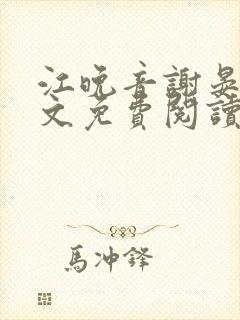 江晚音謝晏
文免費閱讀
馬冲鋒